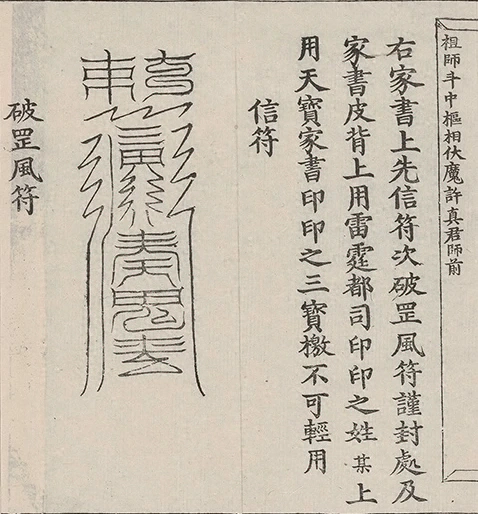 祖師斗中樞相伏魔許真君師前
右家書上先信符次破罡風符謹封處及
家書皮背上用雷霆都司印印之姓某上
用天寶家書印印之三寶檄不可輕用
信符
破罡風符